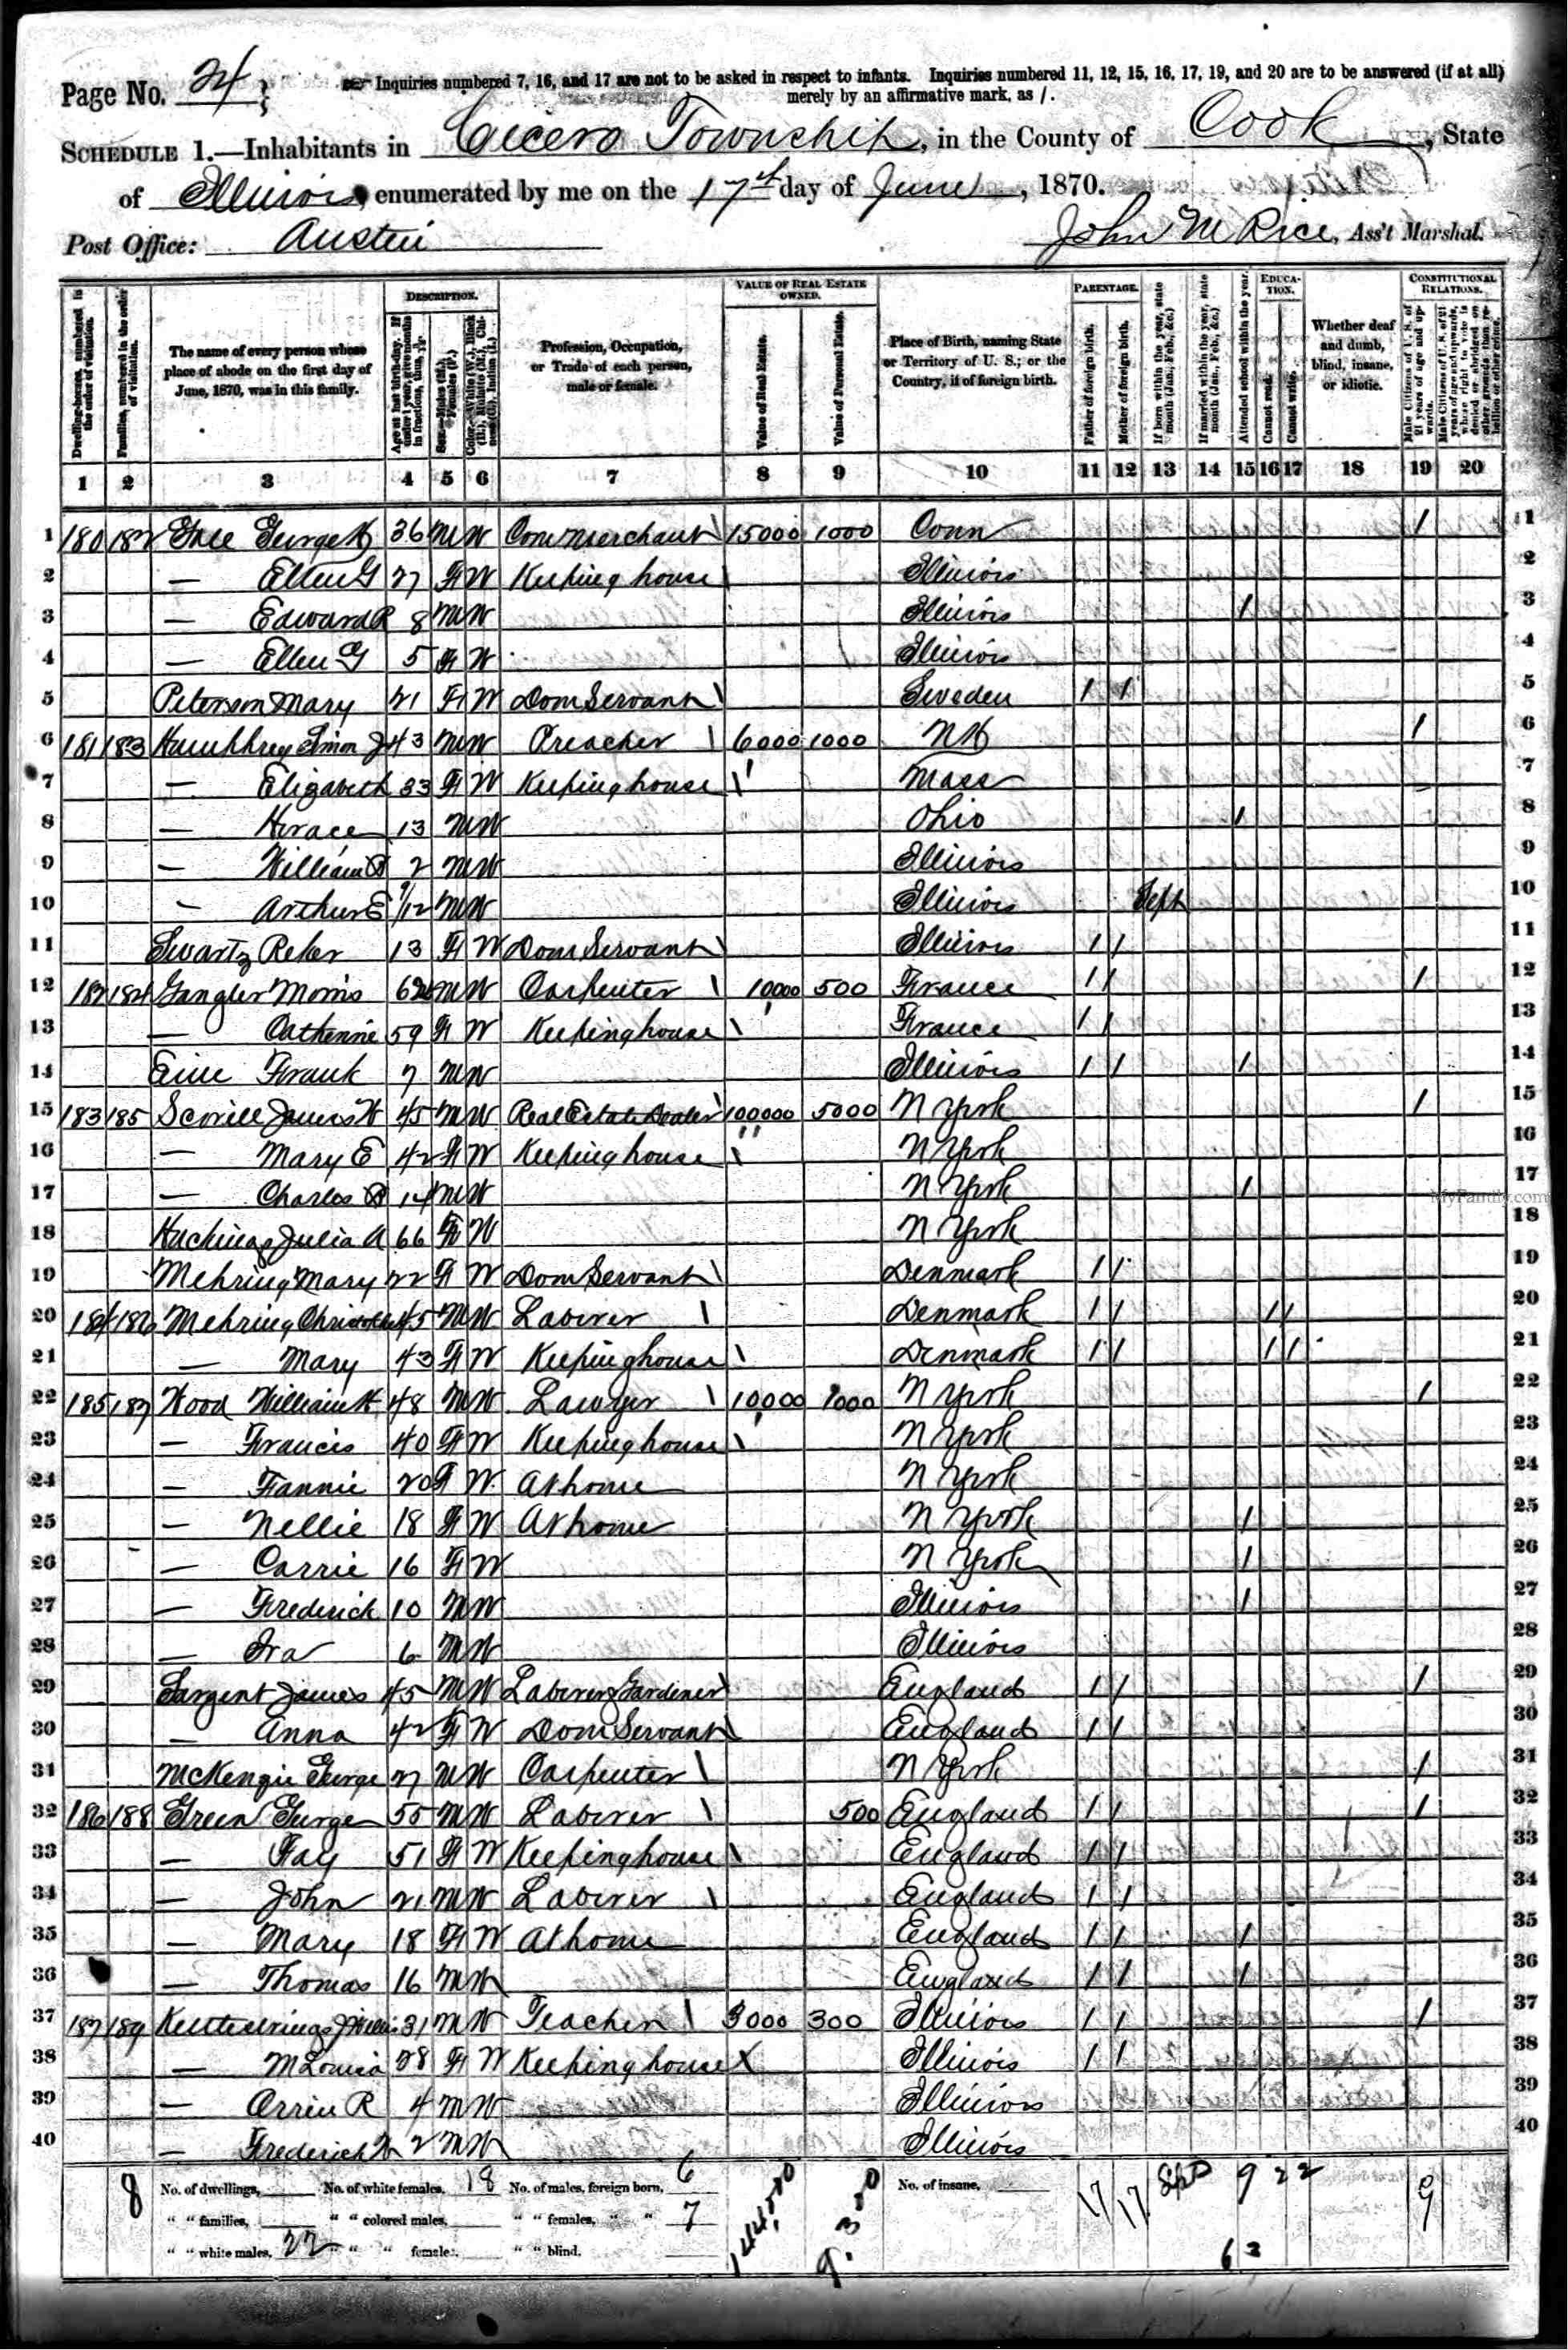 Page No. 24
Inquiries numbered 7, 16, and 17 are not to be asked in respect to infants. Inquiries numbered 11, 12, 15, 16, 17, 19, and 20 are to be answered (if at all)
merely by an affirmative mark, as /.
SCHEDULE 1.—Inhabitants in Cicero Township, in the County of Cook, State
of Illinois, enumerated by me on the 17th day of June, 1870.
Post Office: Austin John M Rice, Ass't Marshal.
Dwelling-houses, numbered in the order of visitation.
Families, numbered in the order of visitation.
The name of every person whose place of abode on the first day of June, 1870, was in this family.
DESCRIPTION.
Age at last birth-day. If under 1 year, give months in fractions, thus,
Sex.—Males (M.), Females (F.)
Color.—White (W.), Black (B.), Mulatto (M.), Chinese (C.), Indian (I.)
Profession, Occupation, or Trade of each person, male or female.
VALUE OF REAL ESTATE OWNED.
Value of Real Estate.
Value of Personal Estate.
Place of Birth, naming State or Territory of U. S.; or the Country, if of foreign birth.
PARENTAGE.
Father of foreign birth.
Mother of foreign birth.
If born within the year, state month (Jan., Feb., &c.)
If married within the year, state month (Jan., Feb., &c.)
Attended school within the year.
EDUCATION.
Cannot read.
Cannot write.
Whether deaf and dumb, blind, insane, or idiotic.
CONSTITUTIONAL RELATIONS.
Male Citizens of U. S. of 21 years of age and upwards.
Male Citizens of U. S. of 21 years of age and upwards, whose right to vote is denied or abridged on other grounds than rebellion or other crime.
1 2 3 4 5 6 7 8 9 10 11 12 13 14 15 16 17 18 19 20
1 180 182 George 36 M W Com Merchant 15000 1000 Conn / 1
2 — Ellen G 27 F W Keeping house Illinois 2
3 — Edward R 8 M W Illinois / 3
4 — Ellen G 5 F W Illinois 4
5 Peterson Mary 21 F W Dom Servant Sweden / / 5
6 181 183 Humphrey Simon J 43 M W Preacher 6000 1000 N H / 6
7 — Elizabeth 33 F W Keeping house Mass 7
8 — Horace 13 M W Ohio / 8
9 — William B 2 M W Illinois 9
10 — Arthur E 9/12 M W Illinois Sept 10
11 Swartz 13 F W Dom Servant Illinois / / 11
12 182 184 Gangler Morris 62 M W Carpenter 10,000 500 France / / / 12
13 — Catherine 59 F W Keeping house France / / 13
14 Frank 7 M W Illinois / / / 14
15 183 185 Scovill James W 45 M W Real Estate Dealer 100000 5000 N York / 15
16 — Mary E 42 F W Keeping house N York 16
17 — Charles B 14 M W N York / 17
18 Huchings Julia A 66 F W N York 18
19 Mehring Mary 22 F W Dom Servant Denmark / / 19
20 184 186 Mehring 45 M W Laborer Denmark / / / / 20
21 — Mary 43 F W Keeping house Denmark / / / / 21
22 185 187 Wood William H 48 M W Lawyer 10,000 1000 N York / 22
23 — Francis 40 F W Keeping house N York 23
24 — Fannie 20 F W At home N York 24
25 — Nellie 18 F W At home N York / 25
26 — Carrie 16 F W N York / 26
27 — Frederick 10 M W Illinois / 27
28 — Ira 6 M W Illinois 28
29 Sargent James 45 M W Laborer & Gardener England / / / 29
30 — Anna 42 F W Dom Servant England / / 30
31 McKenzie George 27 M W Carpenter N York / 31
32 186 188 Green George 55 M W Laborer 500 England / / / 32
33 — Fay 51 F W Keeping house England / / 33
34 — John 21 M W Laborer England / / 34
35 — Mary 18 F W At home England / / / 35
36 — Thomas 16 M W England / / / 36
37 187 189 Kettlestrings 31 M W Teacher 3000 300 Illinois / / / 37
38 — M Louisa 28 F W Keeping house X Illinois / / 38
39 — Arrin R 4 M W Illinois 39
40 — Frederick W 2 M W Illinois 40
8 No. of dwellings, No. of white females, 18 No. of males, foreign born, 6 144,000 9.300 No. of insane, 17 17 9 2 2 9
" " families, " " colored males, " " females, " " 7
" " white males, 22 " " females, " " blind,
MyFamily.com